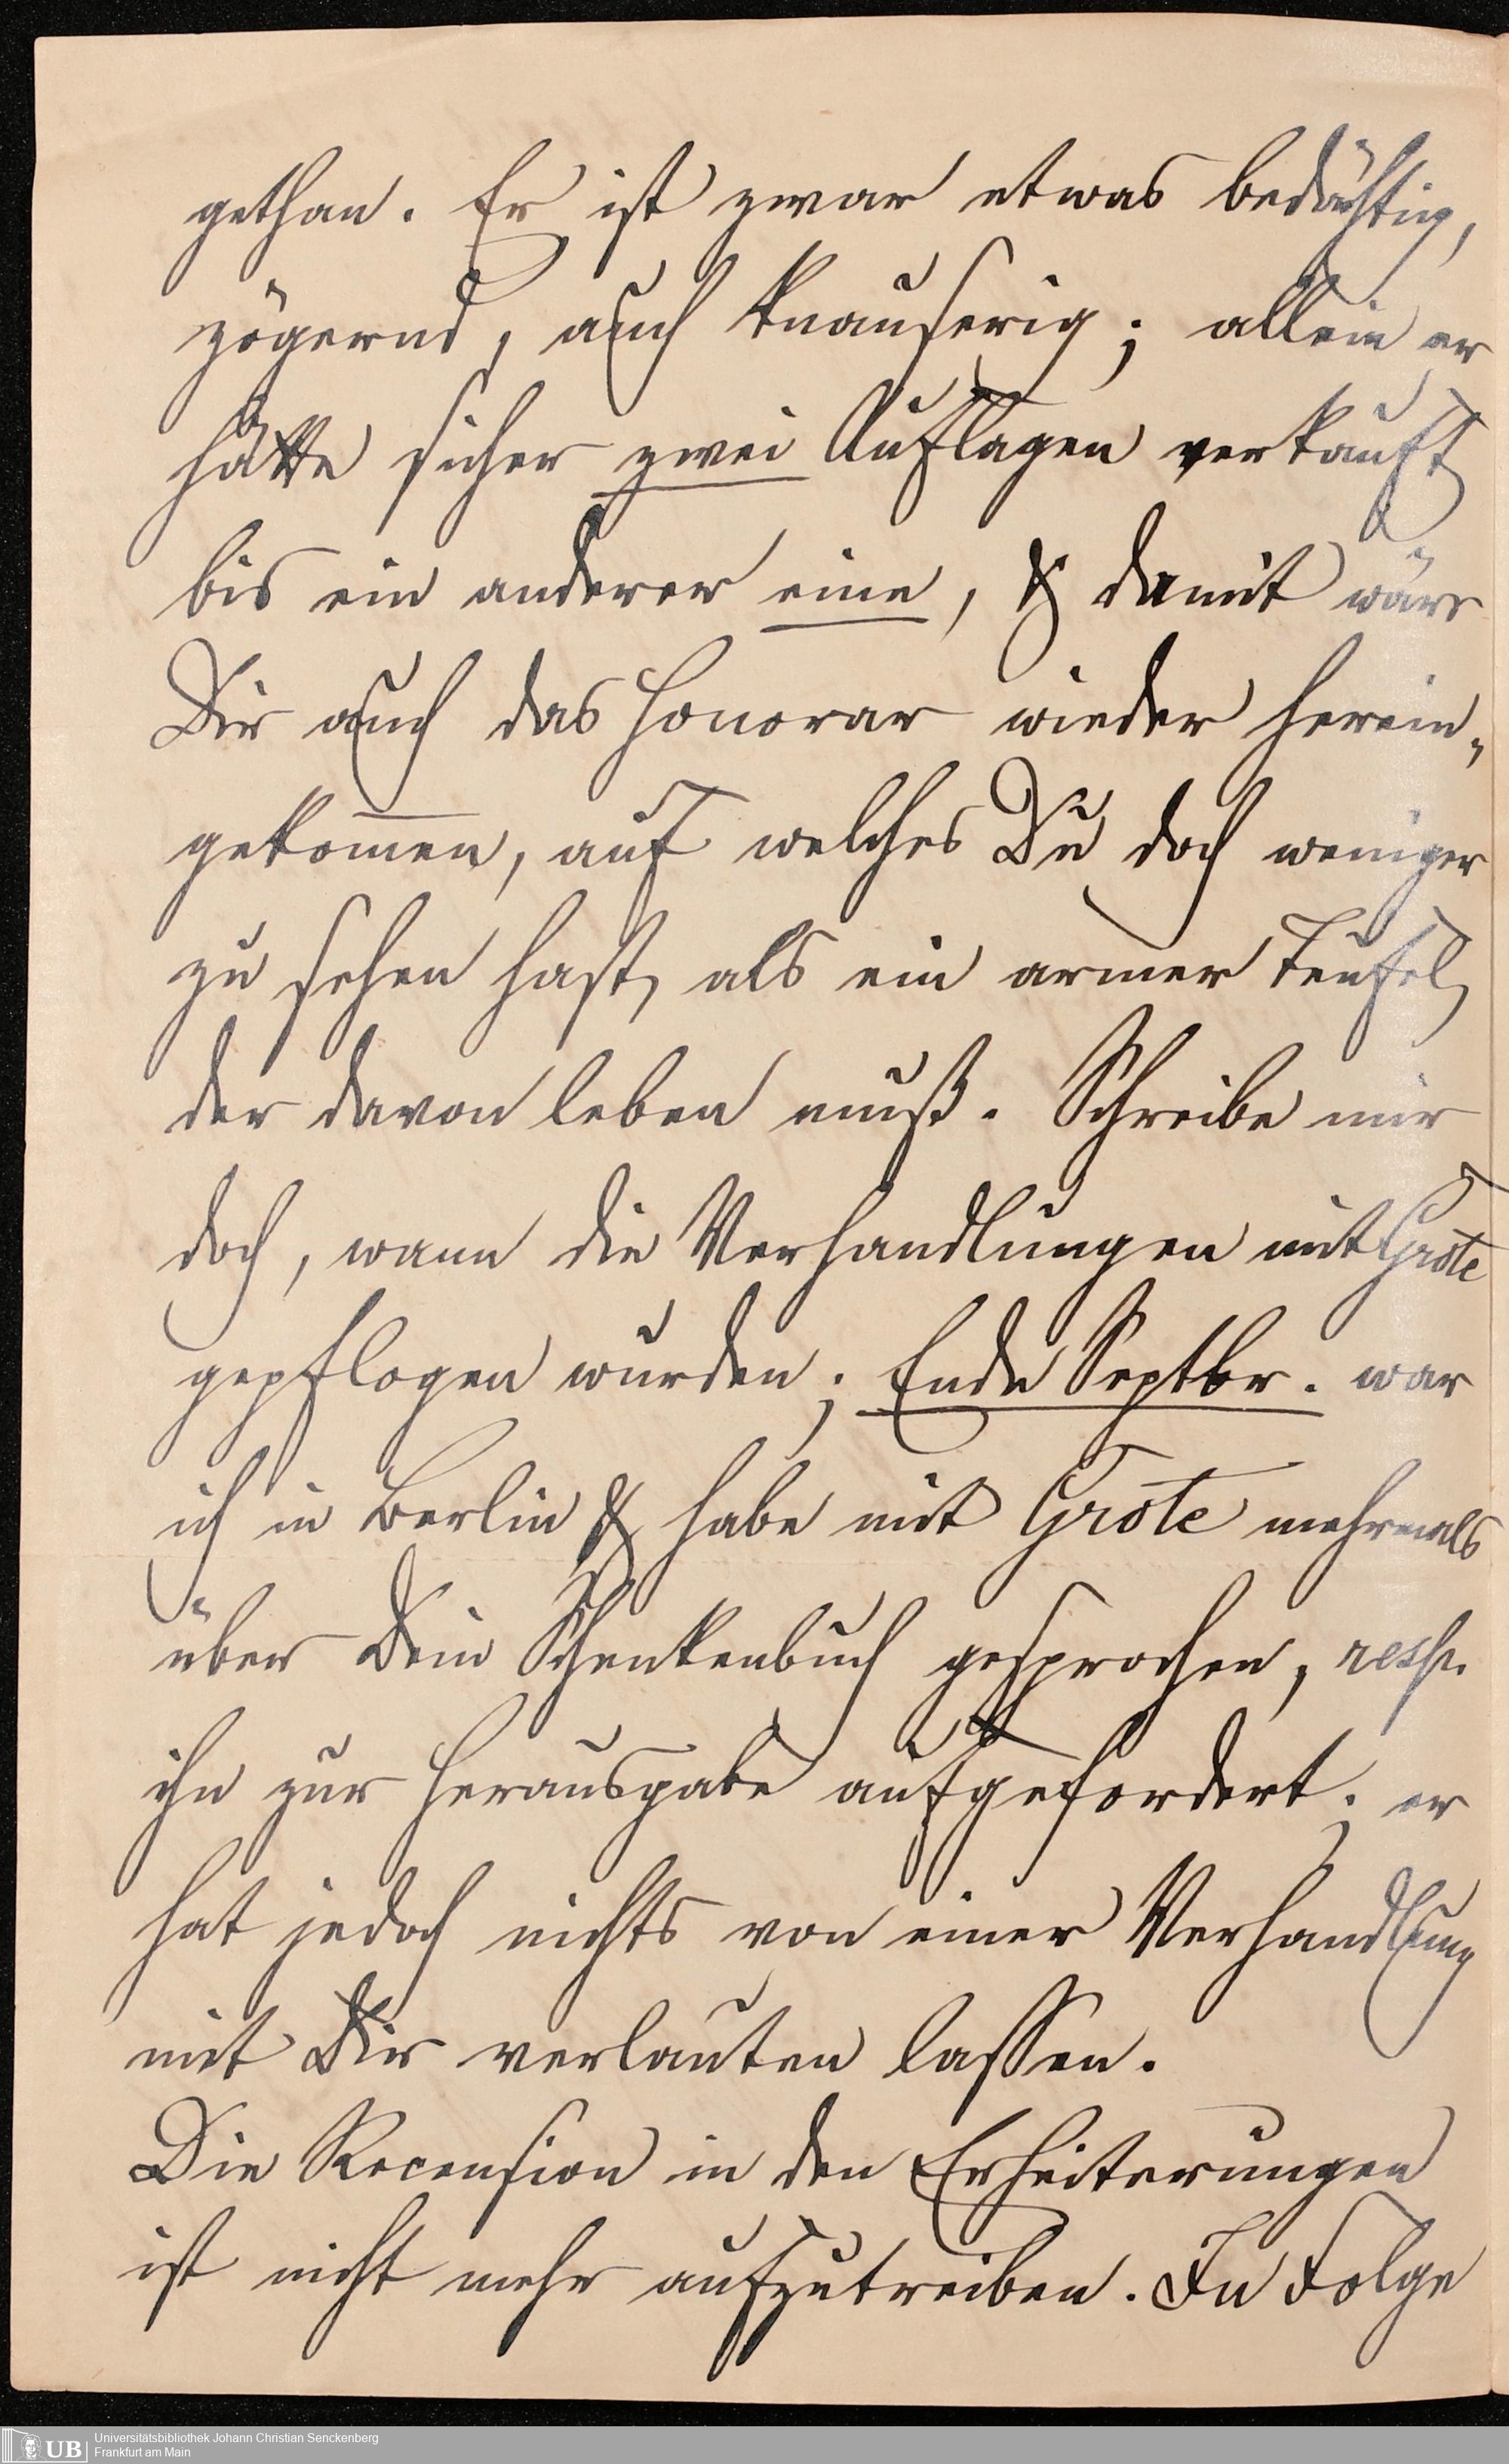 gethan. Er ist zwar etwas bedächtig,
zögernd, auch knauserig; allein er
hätte sicher zwei Auflagen verkauft
bis ein anderer eine, & damit wäre
Dir auch das Honorar wieder herein-
gekom̅en, auf welches Du doch weniger
zu sehen hast, als ein armer Teufel,
der davon leben muß. Schreibe mir
doch, wann die Verhandlungen mit Grote
gepflogen wurden; Ende Septbr. war
ich in Berlin & habe mit Grote mehrmals
über Dein Schenkenbuch gesprochen, resp.
ihn zur Herausgabe aufgefordert; er
hat jedoch nichts von einer Verhandlung
mit Dir verlauten lassen.
Die Recension in den Erheiterungen
ist nicht mehr aufzutreiben. In Folge
UB
Universitätsbibliothek Johann Christian Senckenberg
Frankfurt am Main